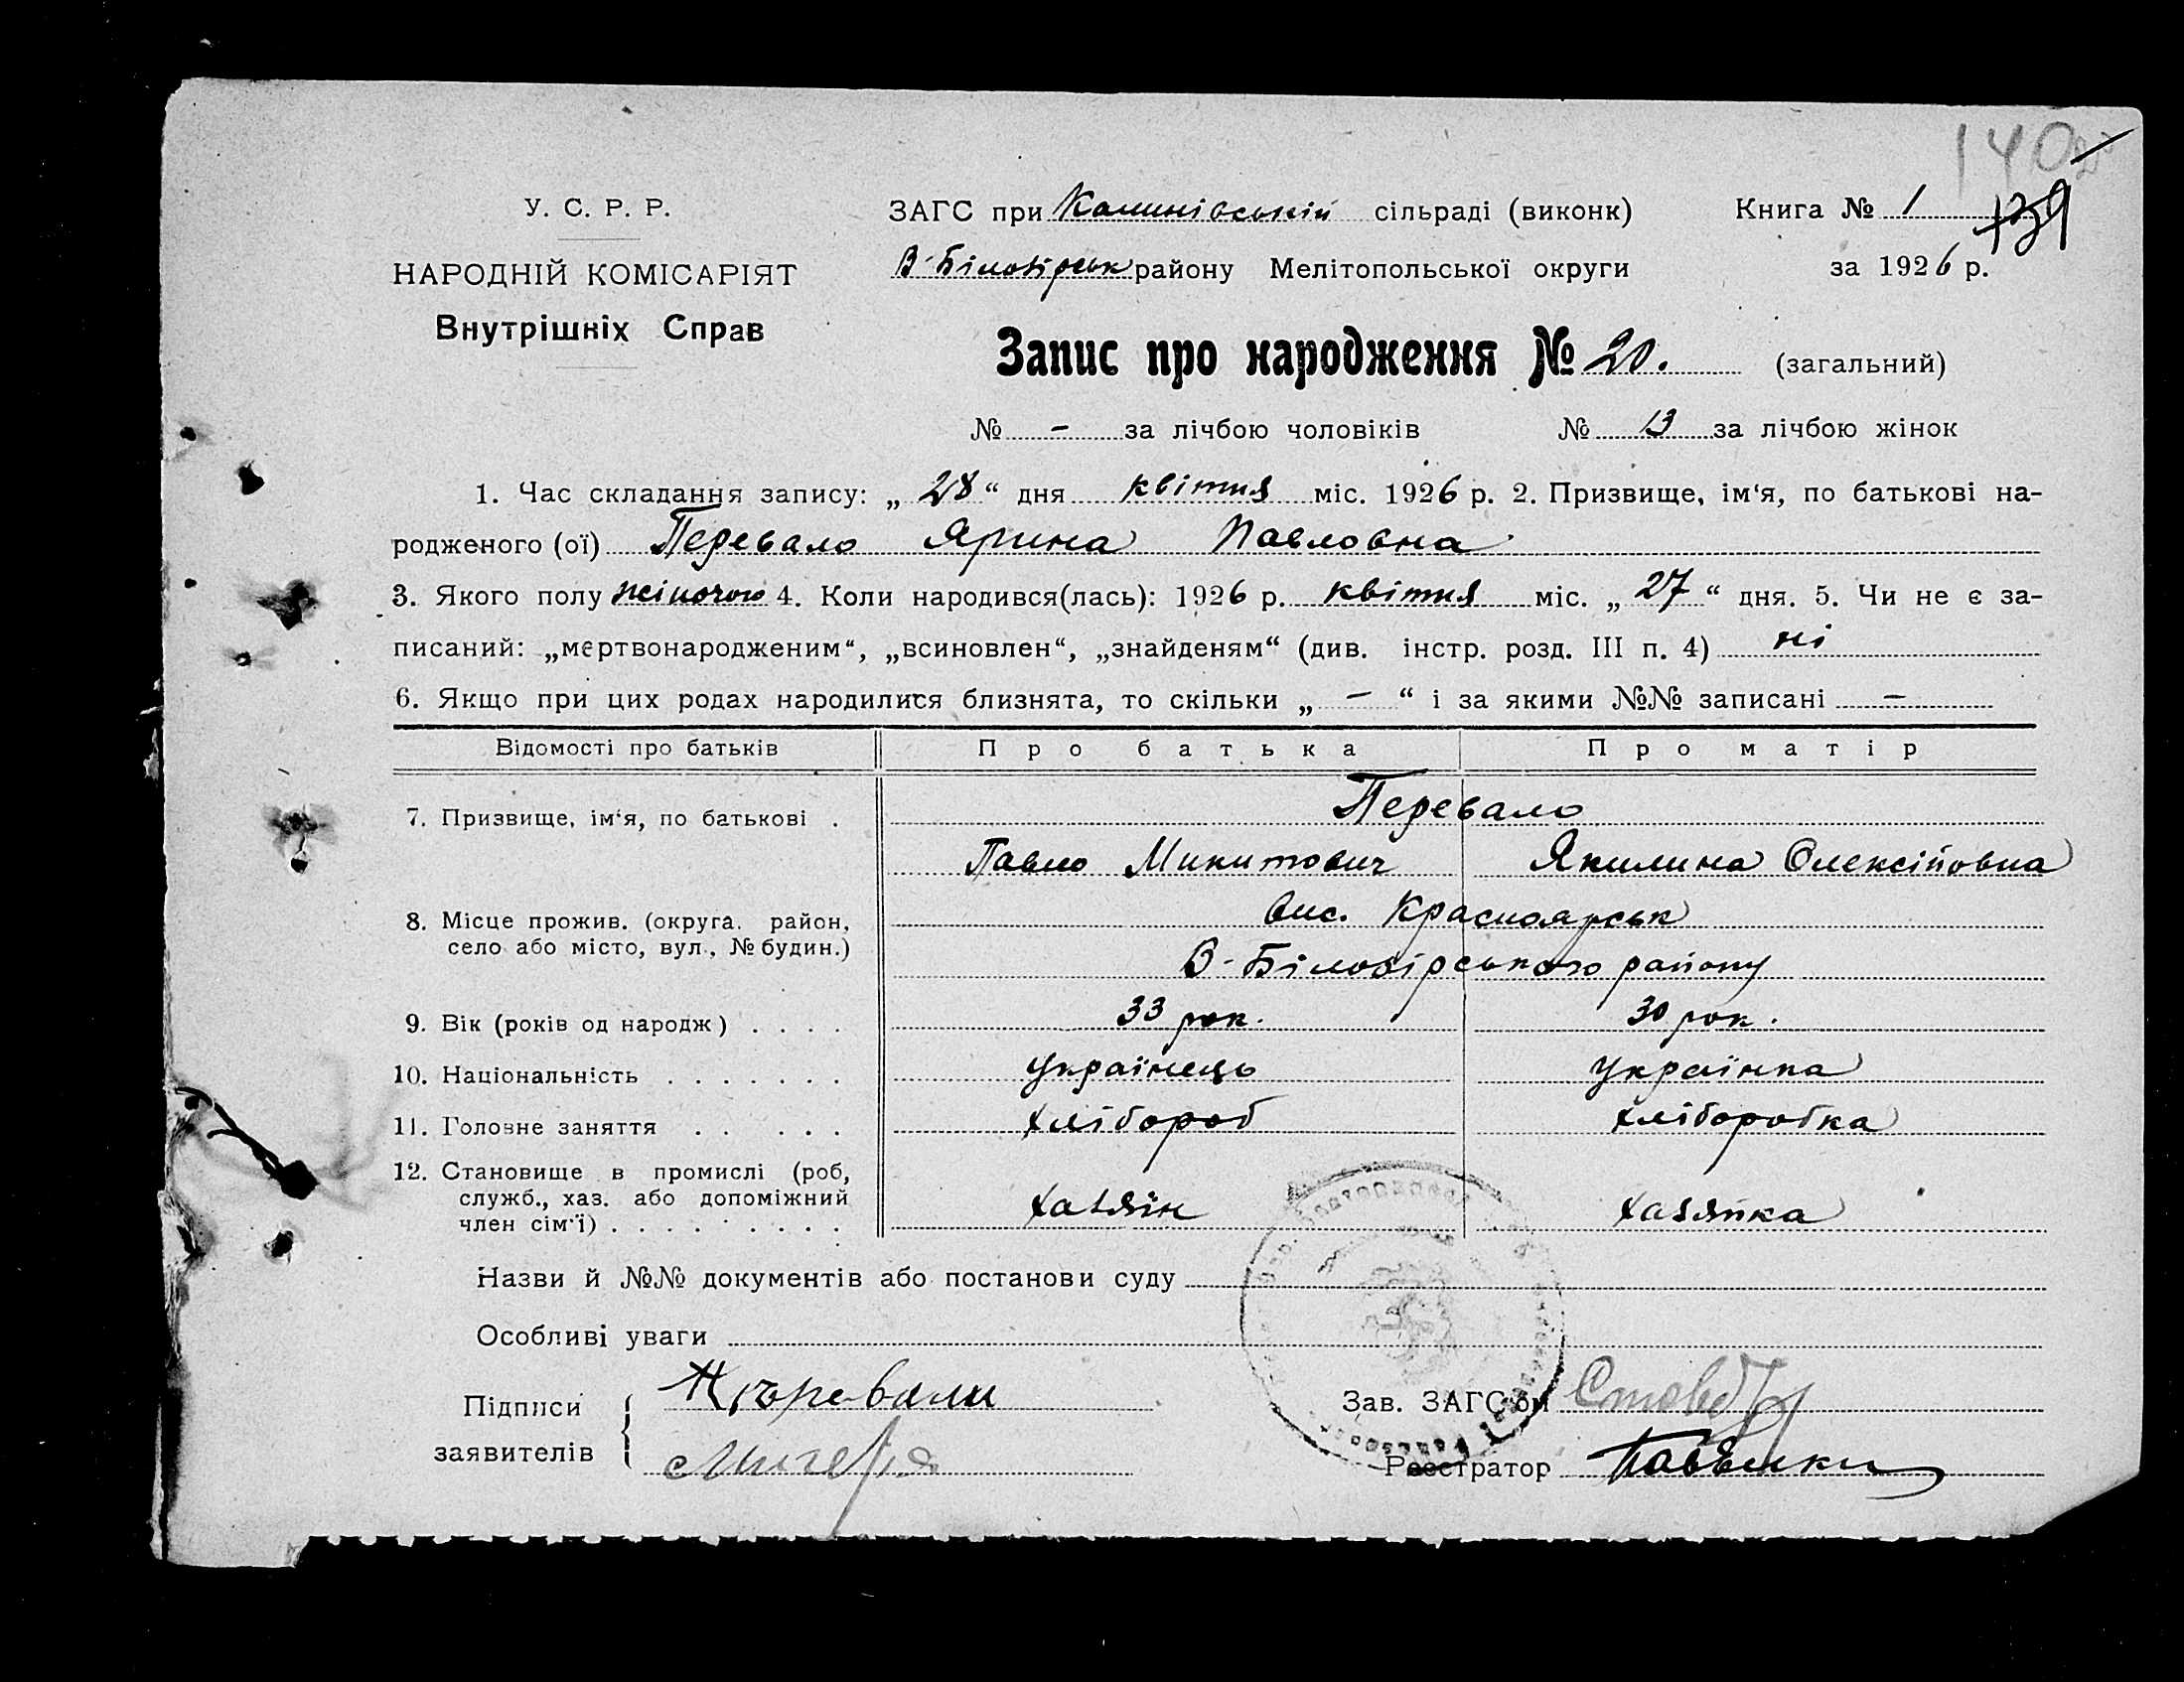 140
У. С. Р. Р.
ЗАГС при Калинівській сільраді (виконк)
Книга № 1
139
НАРОДНІЙ КОМІСАРІЯТ
В-Білозірськ району Мелітопольської округи
за 1926 р.
Внутрішніх Справ
Запис про народження № 20. (загальний)
№ - за лічбою чоловіків № 13 за лічбою жінок
1. Час складання запису: „28“ дня квітня міс. 1926 р. 2. Призвище, ім‘я, по батькові на-
родженого (ої) Перевало Ярина Павловна
3. Якого полу жіночого 4. Коли народився(лась): 1926 р. квітня міс. „27“ дня. 5. Чи не є за-
писаний: „мертвонародженим“, „всиновлен“, „знайденям“ (див. інстр. розд. III п. 4) ні
6. Якщо при цих родах народилися близнята, то скільки „ - “ і за якими №№ записані -
Відомості про батьків Про батька Про матір
7. Призвище, ім‘я, по батькові . Перевало
Павло Микитович Якилина Олексіївна
8. Місце прожив. (округа. район, вис. Красноярськ
село або місто, вул., № будин.) В-Білозірського району
9. Вік (років од народж) . . . . 33 рок. 30 рок.
10. Національність . . . . . . . українець українка
11. Головне заняття . . . . . хлібороб хліборобка
12. Становище в промислі (роб,
служб., хаз. або допоміжний хазяїн хазяйка
член сім‘ї) . . . . . . . . .
Назви й №№ документів або постанови суду
Особливі уваги
Підписи
заявителів
Зав. ЗАГС‘ом
Реєстратор